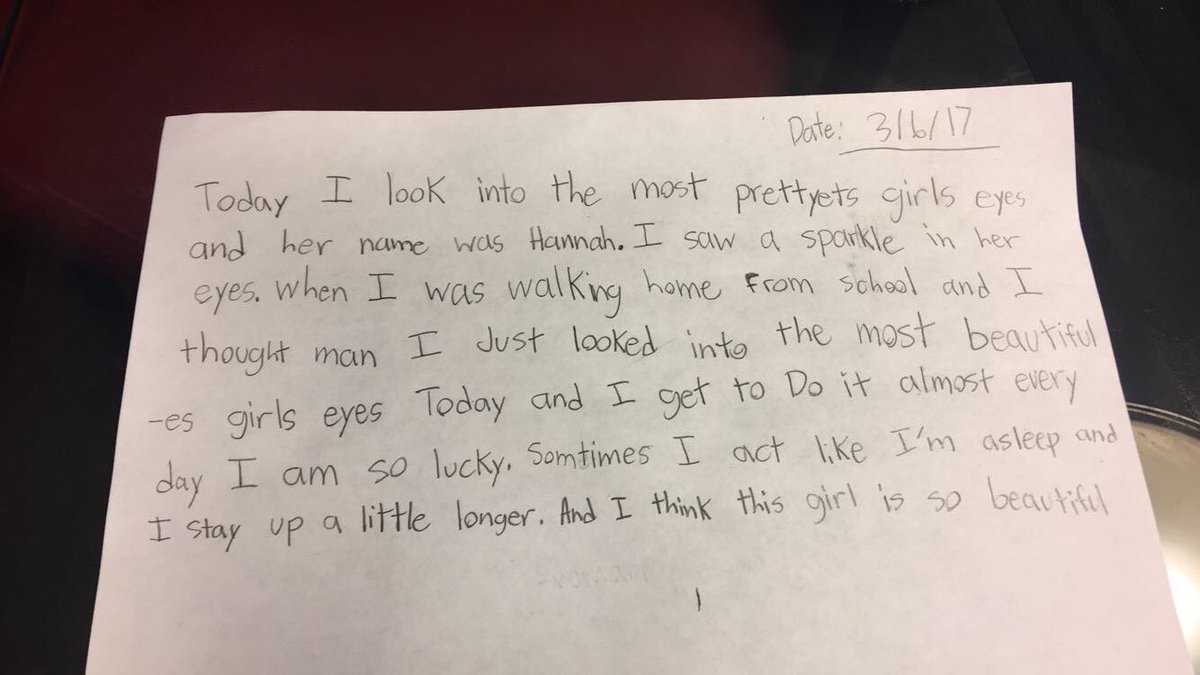 Date: 3/6/17
Today I look into the most prettyets girls eyes
and her name was Hannah. I saw a sparkle in her
eyes. When I was walking home From school and I
thought man I Just looked into the most beautiful
-es girls eyes Today and I get to Do it almost every
day I am so lucky. Somtimes I act like I'm asleep and
I stay up a little longer. And I think this girl is so beautiful